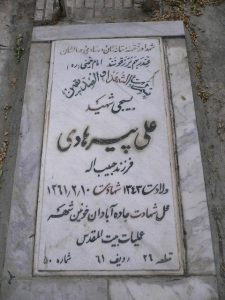 امام خمینی (ره)
بسیجی شهید
علی پیرهادی
فرزند حبیب اله
ولادت ۱۳۴۳ شهادت ۱۳۶۱/۲/۱۰
محل شهادت جاده آبادان خونین شهر
عملیات بیت المقدس
قطعه ۲۶ ردیف ۶۱ شماره ۵۰